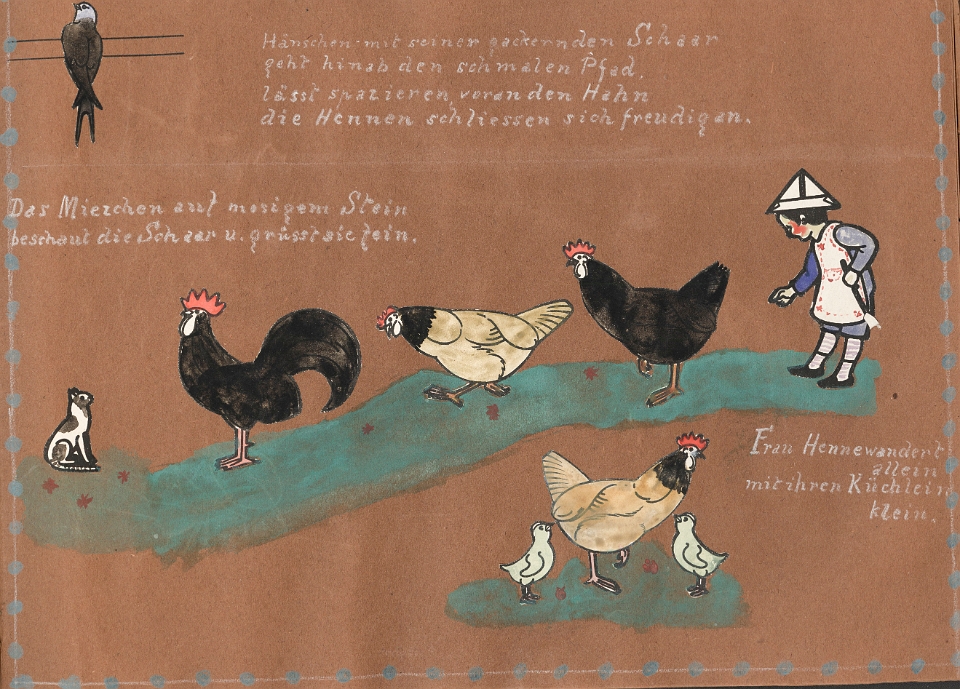 Hänschen mit seiner gackernden Schaar
geht hinab den schmalen Pfad,
lässt spazieren voran den Hahn
die Hennen schliessen sich freudig an.
Das Mierchen auf mosigem Stein
beschaut die Schaar u. grüsst sie fein.
Frau Henne wandert
allein
mit ihren Küchlein
klein.